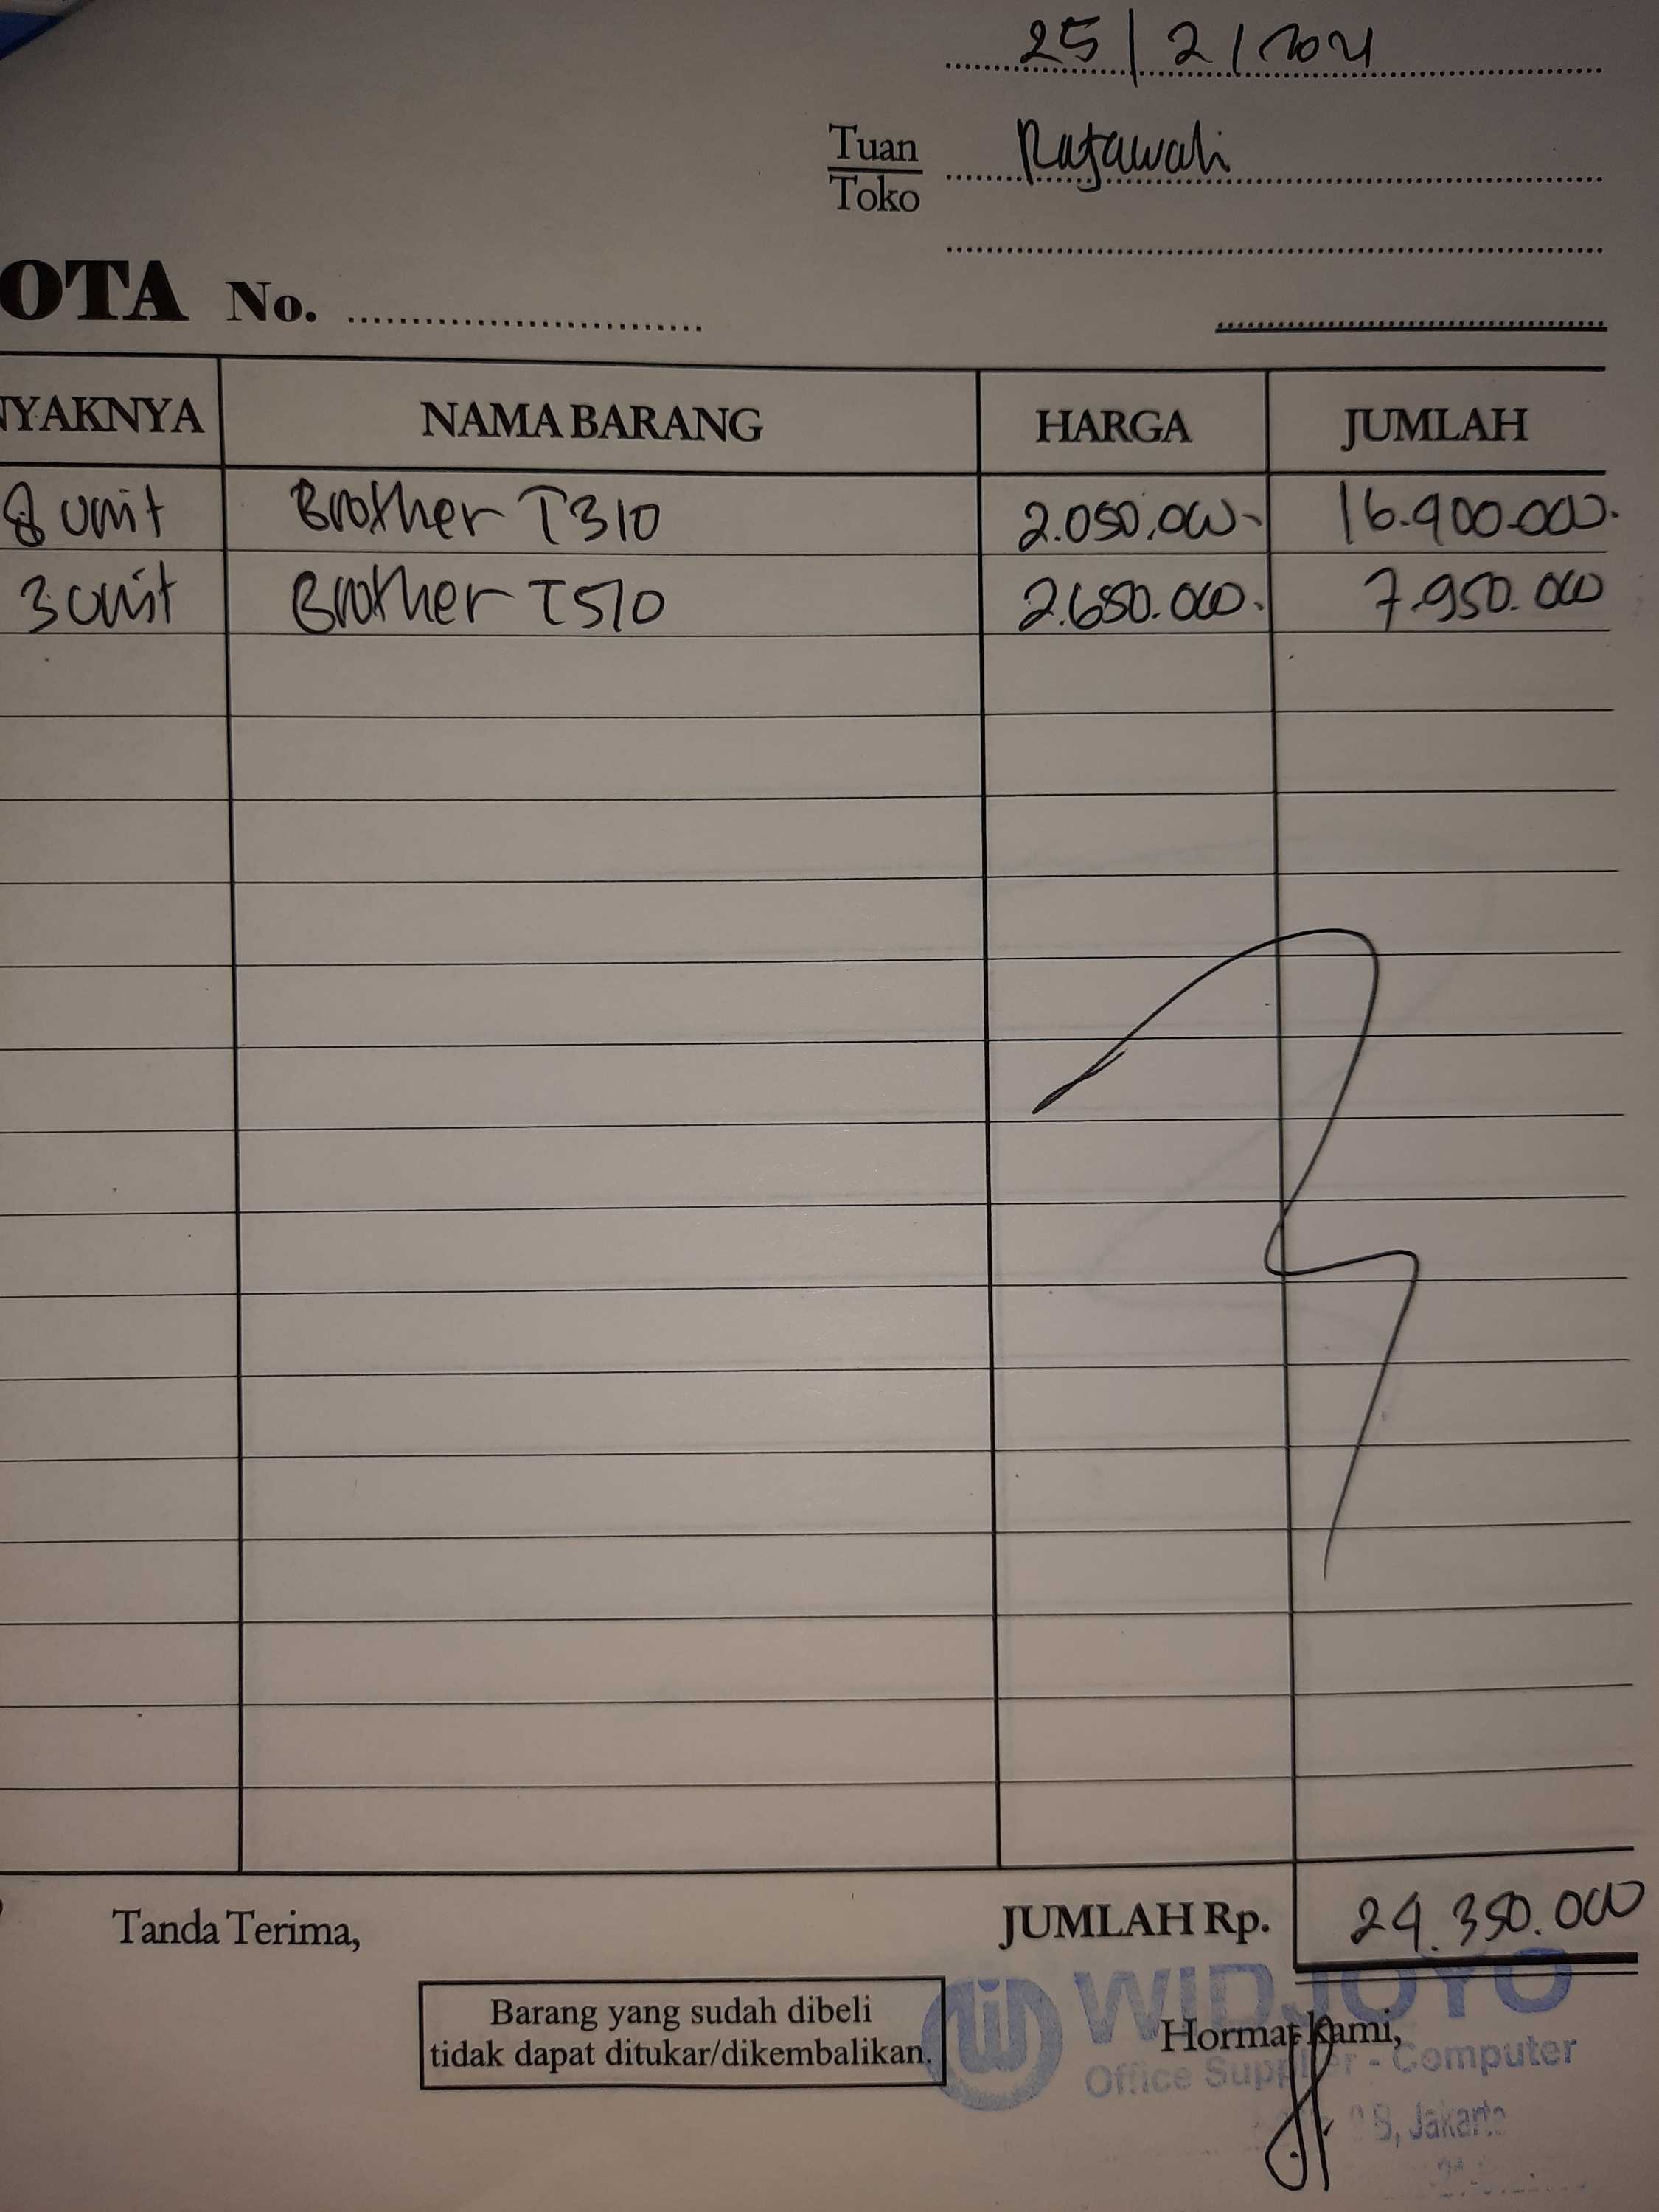 25/2/2021
Tuan
Toko
Rajawali
OTA No.
NYAKNYA NAMA BARANG HARGA JUMLAH
8 unit Brother T310 2.050.000- 16.400.000.
3 unit Brother T510 2.650.000. 7.950.000
Tanda Terima,
JUMLAH Rp. 24.350.000
Barang yang sudah dibeli
tidak dapat ditukar/dikembalikan.
WIDJOYO
Hormat kami,
Office Supplier - Computer
Jakarta